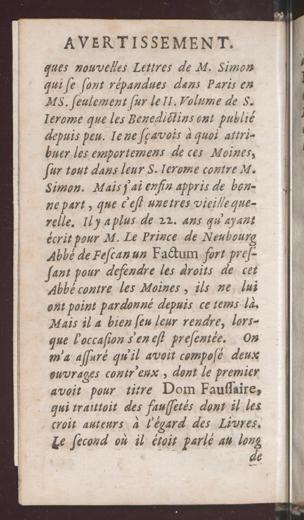 AVERTISSEMENT.
ques nouvelles Lettres de M. Simon
qui se sont répandues dans Paris en
MS. seulement sur le II. Volume de S.
Ierome que les Benedictins ont publié
depuis peu. Ie ne sçavois à quoi attri-
buer les emportemens de ces Moines,
sur tout dans leur S. Ierome contre M.
Simon. Mais j'ai enfin appris de bon-
ne part, que c'est une tres vieille que-
relle. Il y a plus de 22. ans qu'ayant
écrit pour M. Le Prince de Neubourg
Abbé de Fescan un Factum fort pres-
sant pour defendre les droits de cet
Abbé contre les Moines, ils ne lui
ont point pardonné depuis ce tems là.
Mais il a bien seu leur rendre, lors-
que l'occasion s'en est presentée. On
m'a assuré qu'il avoit composé deux
ouvrages contr'eux, dont le premier
avoit pour titre Dom Faussaire,
qui traittoit des faussetés dont il les
croit auteurs à l'égard des Livres.
Le second où il étoit parlé au long
de